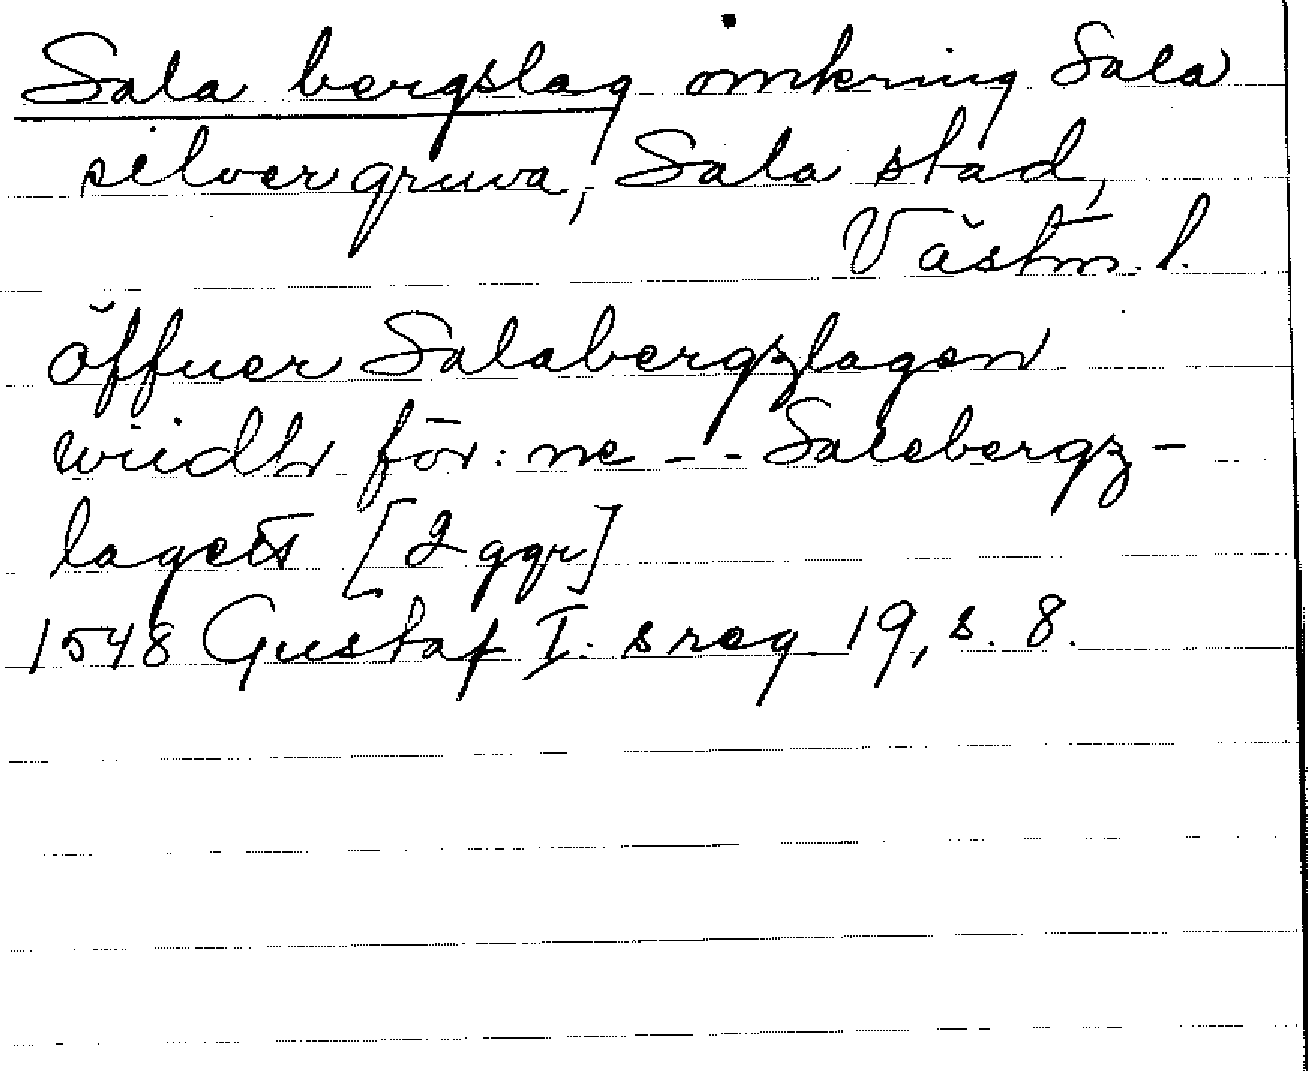 Sala bergslag omkring Sala
silvergruva, Sala stad,
Västm. l.
öffuer Salabergzlagen
för: ne -- Salebergz-
lagett [2 ggr]
1548 Gustaf I: s reg 19, s. 8.